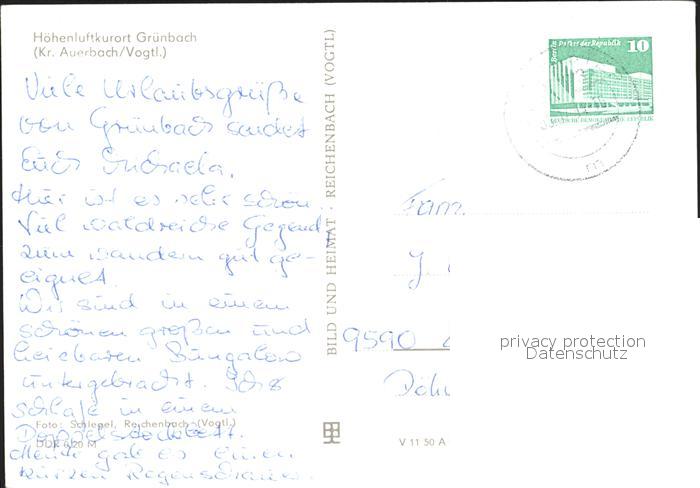 Höhenluftkurort Grünbach
(Kr. Auerbach/Vogtl.)
Viele Urlaubsgrüße
von Grünbach sendet
Euch
Hier ist es sehr schön.
Viel waldreiche Gegend,
zum wandern gut ge-
eignet.
Wir sind in einem
schönen großen und
heizbaren Bungalow
untergebracht. Ich
schlafe in einem
Doppelstockbett.
Heute gab es einen
kurzen Regenschauer.
Foto: Schlegel, Reichenbach (Vogtl.)
DDR 0,20 M
BILD UND HEIMAT REICHENBACH (VOGTL)
V 11 50 A
Berlin Palast der Republik 10
DEUTSCHE DEMOKRATISCHE REPUBLIK
Fam.
J
9590
privacy protection
Datenschutz